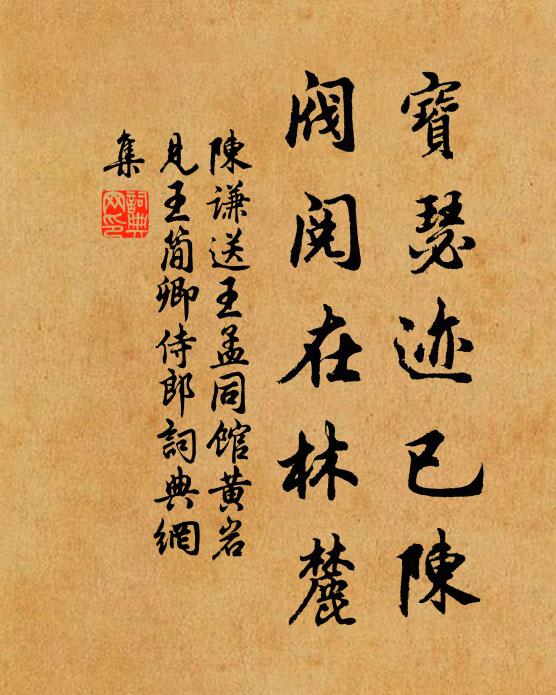 寶瑟迹已陳
閥閱在林麓
陳謙送王孟同館黄岩
見王簡卿侍郎詞典網
集
詞典
网印